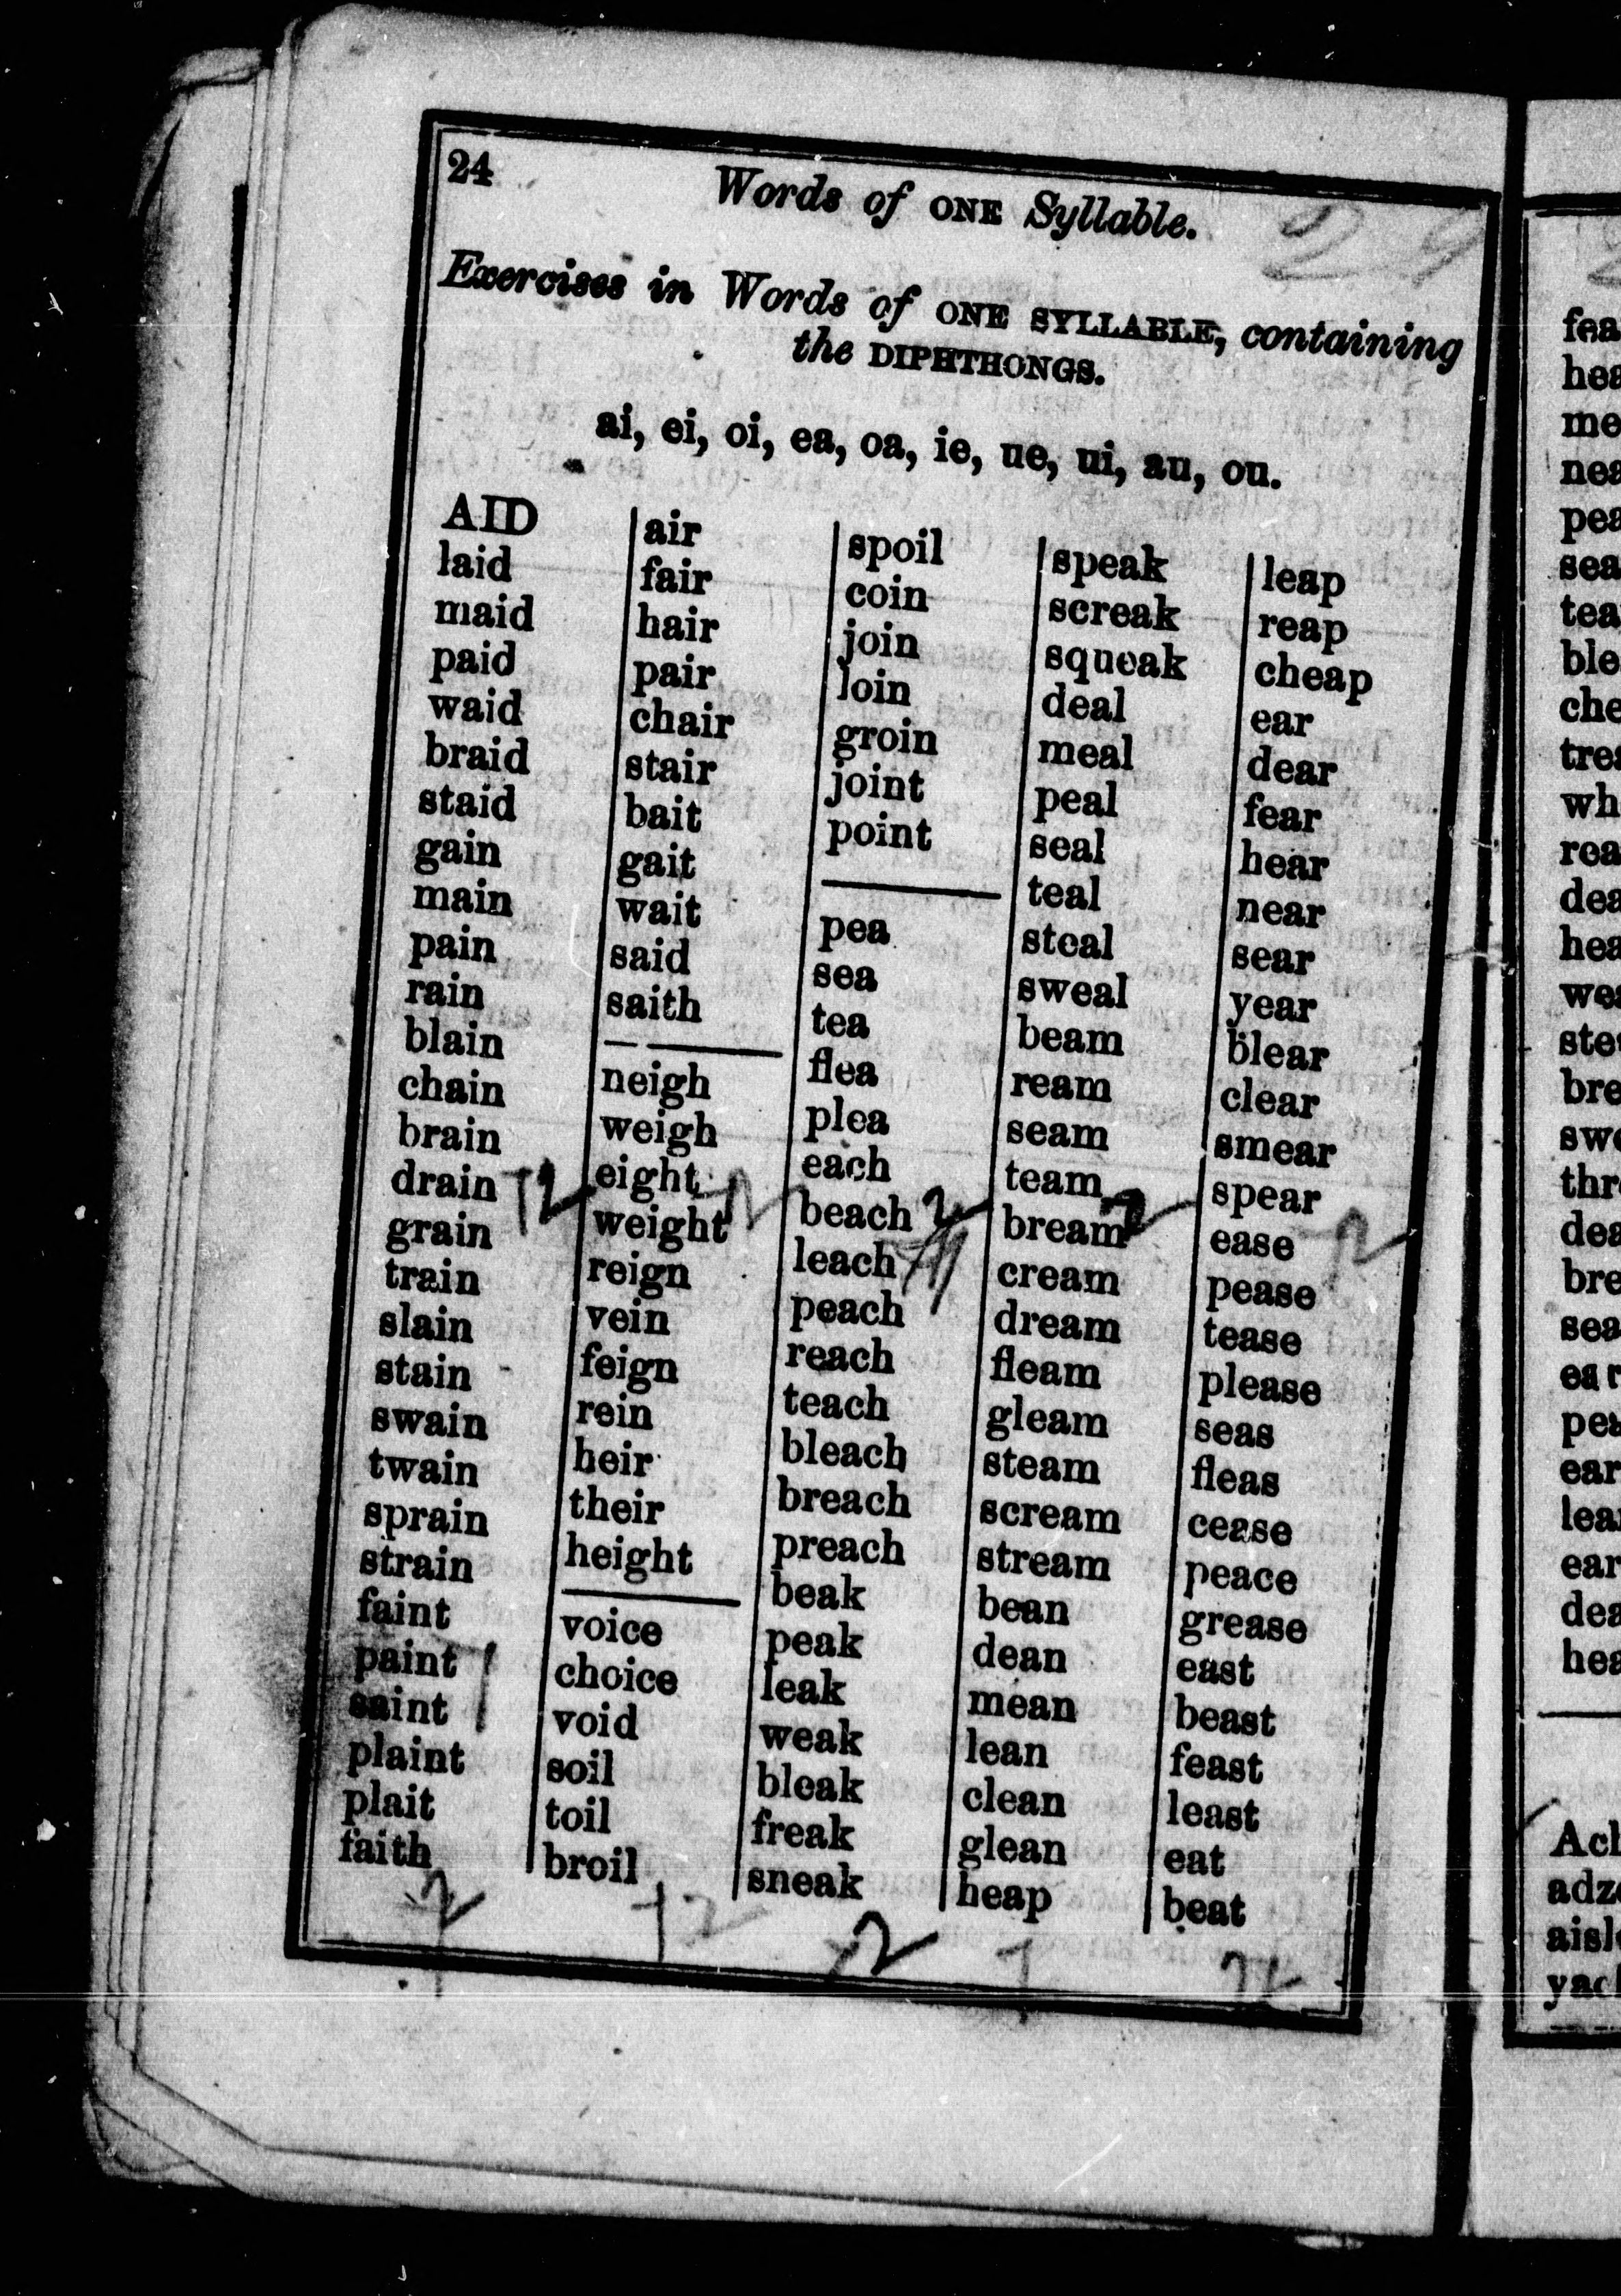 24
Words of ONE Syllable.
Exercises in Words of ONE SYLLABLE, containing
the DIPHTHONGS.
ai, ei, oi, ea, oa, ie, ue, ui, au, ou.
AID
laid
maid
paid
waid
braid
staid
gain
main
pain
rain
blain
chain
brain
drain
grain
train
slain
stain
swain
twain
sprain
strain
faint
paint
saint
plaint
plait
faith
air
fair
hair
pair
chair
stair
bait
gait
wait
said
saith
neigh
weigh
eight
weight
reign
vein
feign
rein
heir
their
height
voice
choice
void
soil
toil
broil
spoil
coin
join
loin
groin
joint
point
pea
sea
tea
flea
plea
each
beach
leach
peach
reach
teach
bleach
breach
preach
beak
peak
leak
weak
bleak
freak
sneak
speak
screak
squeak
deal
meal
peal
seal
teal
steal
sweal
beam
ream
seam
team
bream
cream
dream
fleam
gleam
steam
scream
stream
bean
dean
mean
lean
clean
glean
heap
leap
reap
cheap
ear
dear
fear
hear
near
sear
year
blear
clear
smear
spear
ease
pease
tease
please
seas
fleas
cease
peace
grease
east
beast
feast
least
eat
beat